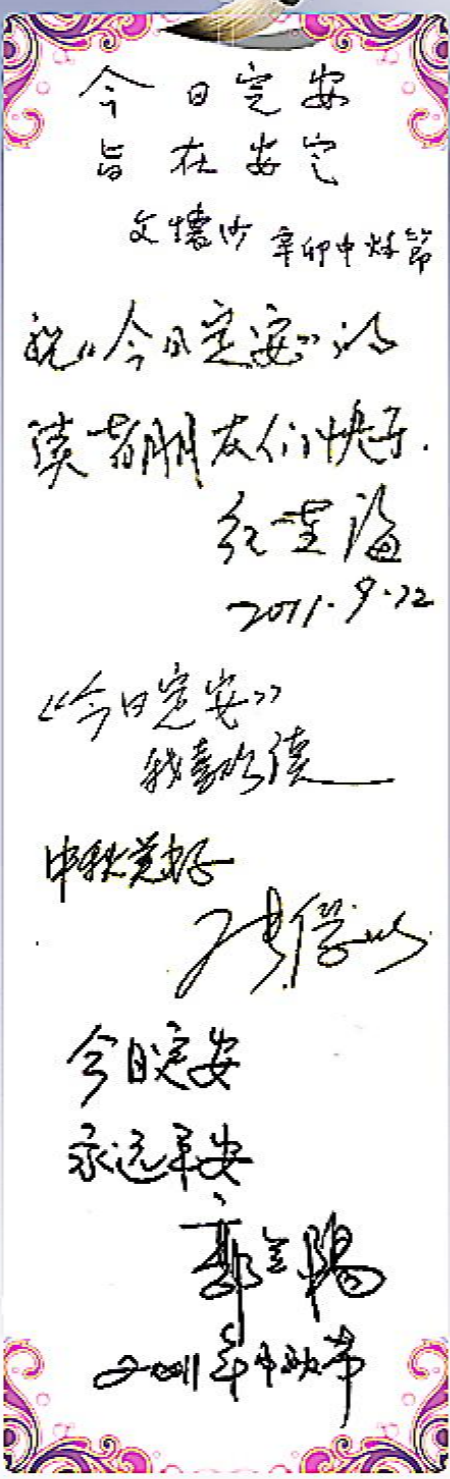 今日定安
旨在安定
文怀沙 辛卯中秋节
祝《今日定安》的
读者朋友们快乐.
纪连海
2011.9.12
《今日定安》
我喜欢读
中秋
今日定安
永远平安
郭
2011年中秋节